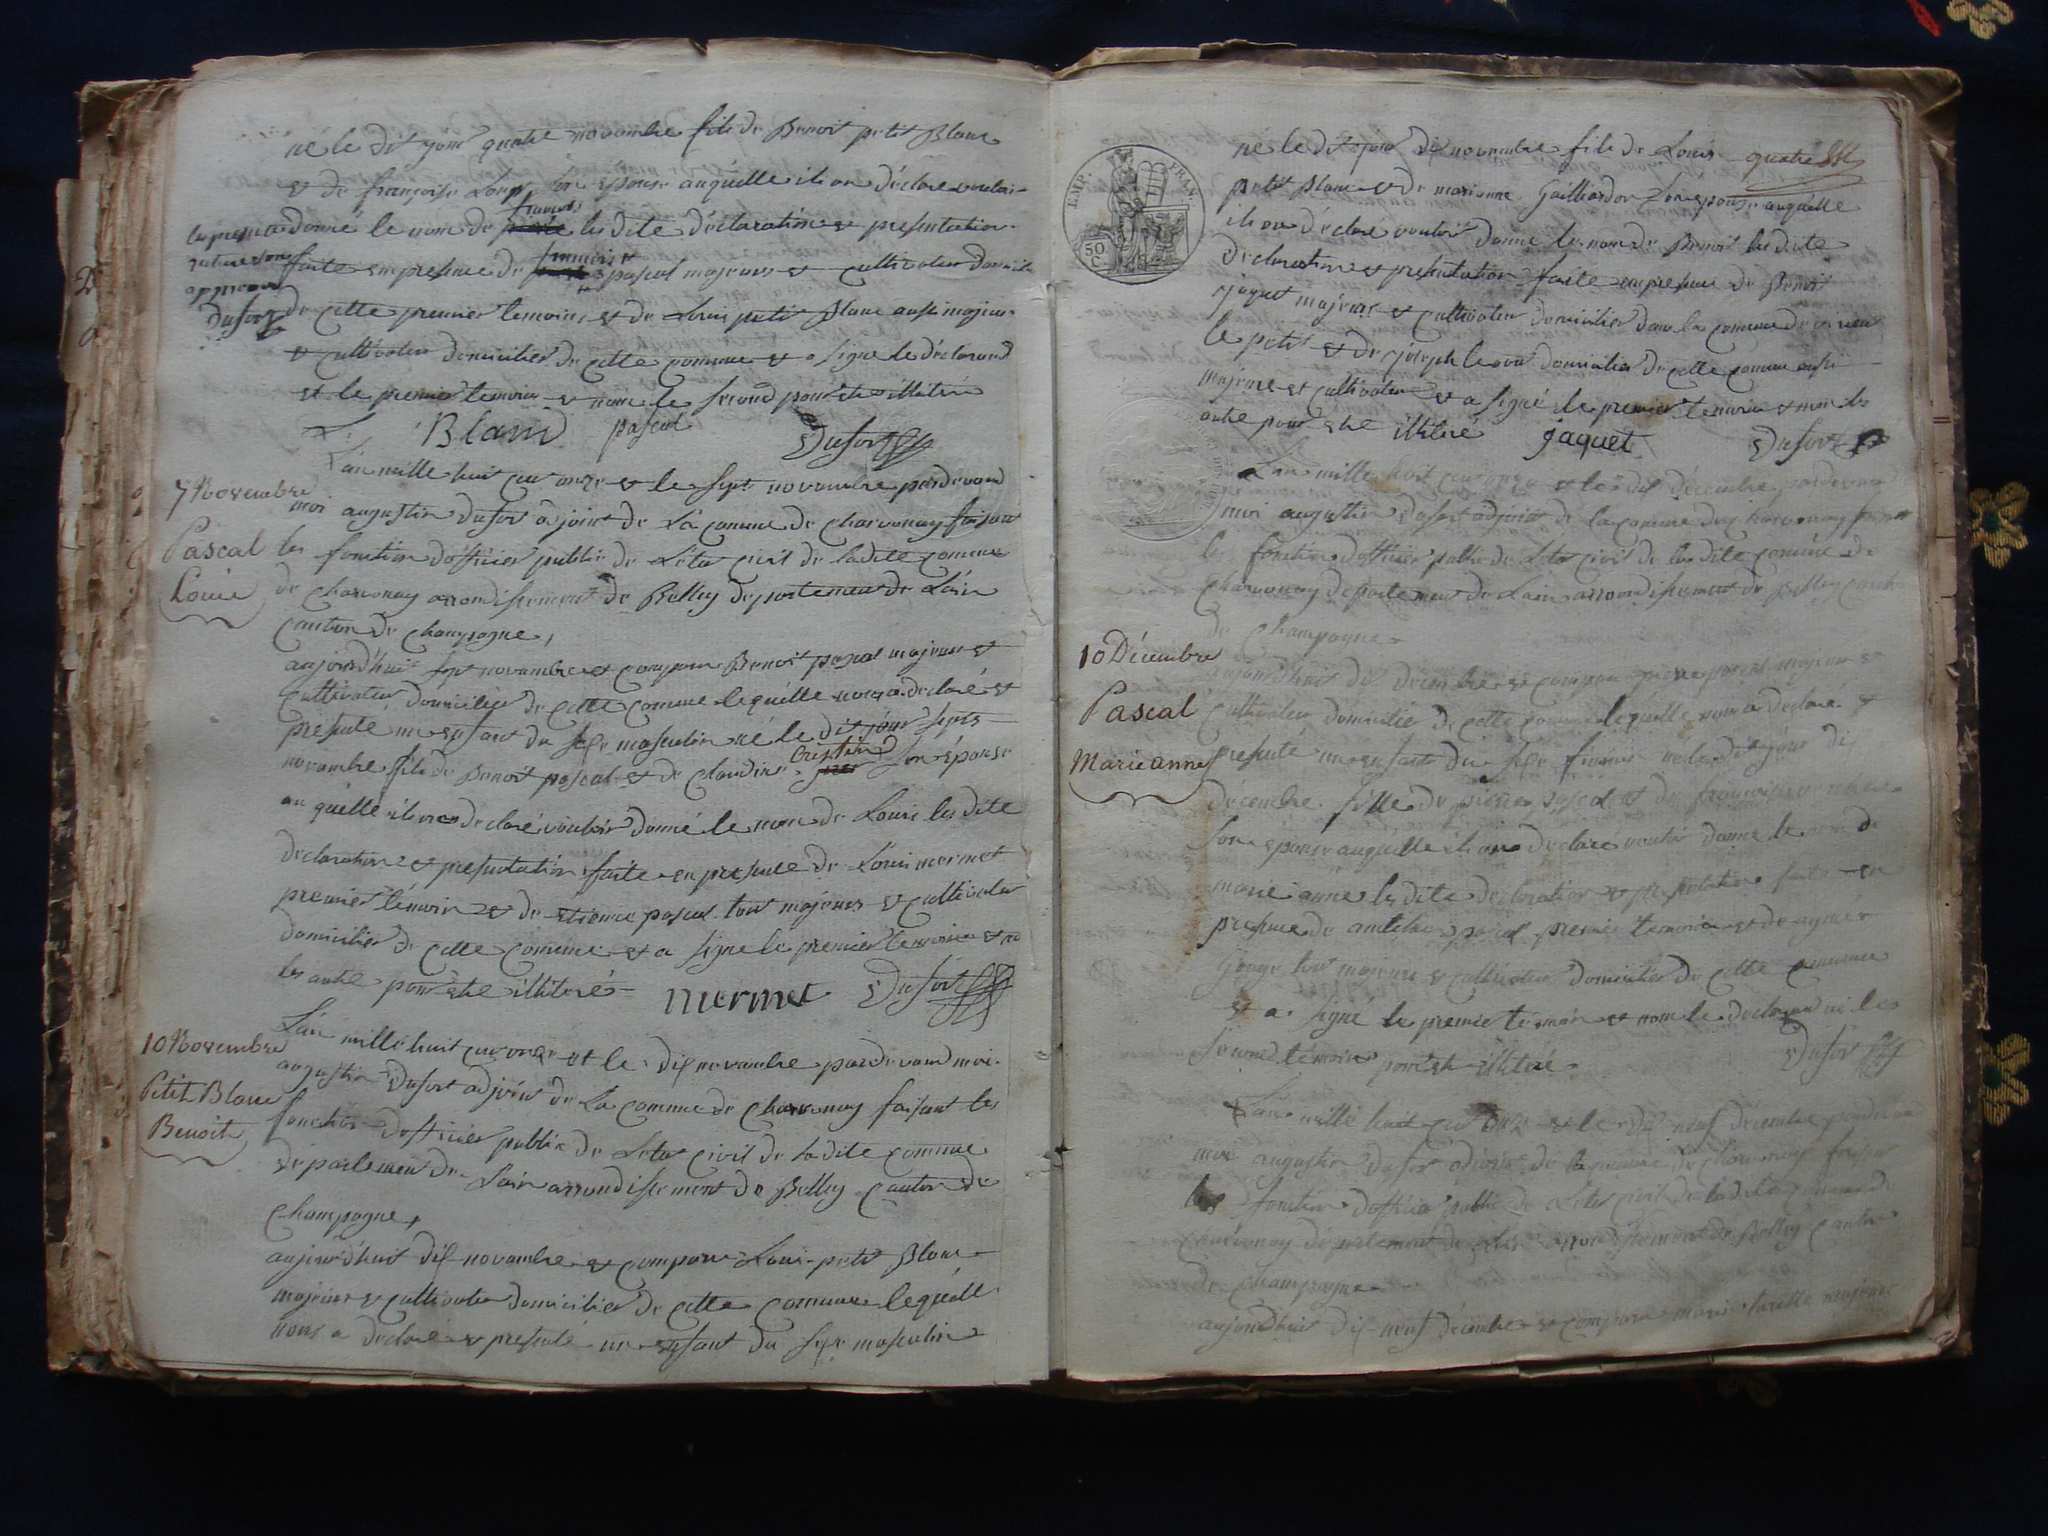 né le dit jour quatre novembre fils de Benoit petit Blanc
et de françoise Loup son épouse auquelle il on déclaré vouloir
donné le nom de françois les dite déclaration et presentation
faite en presence de françois pascal majeur et cultivateur domicilié
de cette premier temoins et de Louis petit Blanc ausi majeur
et cultivateur domicilier de cette commune et a signé le déclarand
et le premier temoins et non le second pour etre illiteré
Blanc pascal Dufort
la presente
rature
approuvé
Dufort
7 Novembre
Pascal
Louis
L'an mille huit cent onze et le sept novembre pardevand
moi augustin Dufort adjoint de La comune de Charvonay faisant
les fonction d'officier public de L'éta civil de ladite comune
de Charvonay arrondissement de Belley departement de Lain
canton de Champagne,
aujourd'huit sept novembre et comparu Benoit pascal majeur et
cultivateur domicilier de cette comune lequelle nous a declaré et
presenté un enfant du sexe masculin né le dit jour sept
novembre fils de Benoit pascal et de Claudine Cristin son épouse
au quelle il on declaré vouloir donné le nom de Louis les dite
declaration et presentation faite en presence de Louis mermet
premier témoin et de etienne pascal tous majeurs et cultivateur
domicilier de cette comune et a signé le premier temoin et no
les autre pour etre illiteré
mermet Dufort
10 Novembre
Petit Blanc
Benoit
L'an mille huit cent onze et le dix novembre pardevand moi
augustin Dufort adjoint de La comune de Charvonay faisant les
fonction d'officier public de L'éta civil de ladite comune
departement de Lain arrondissement de Belley canton de
Champagne,
aujourd'huit dix novembre et comparu Louis petit Blanc
majeur et cultivateur domicilier de cette comune lequelle
nous a declaré et presenté un enfant du sexe masculin
EMP. FRAN.
50
C.
quatre
né le dit jour dix novembre fils de Louis
petit Blanc et de marianne Gaillardon son epouse auquelle
il on déclaré vouloir donné le nom de Benoit les dite
declaration et presentation faite en presence de Benoit
jaquet majeur et cultivateur domicilier dans la comune de virieu
le petit et de joseph domicilier de cette comune ausi
majeur et cultivateur et a signé le premier temoin et non les
autre pour etre illiteré jaquet Dufort
L'an mille huit cent onze et le dix décembre pardevand
moi augustin Dufort adjoint de la comune de Charvonay faisant
les fonction d'officier public de L'éta civil de la dite comune de
Charvonay departement de Lain arrondissement de Belley canton
de Champagne
10 Décembre
Pascal
Marie anne
aujourd'huit dix décembre et comparu pierre pascal majeur et
cultivateur domicilié de cette comune lequelle nous a declaré et
presenté un enfant du sexe feminin né le dit jour dix
décembre fille de pierre pascal et de françoise
son épouse auquelle il on declaré vouloir donné le nom de
marie anne les dite declaration et presentation faite en
presence de antelme pascal premier temoin et de aymé
tous majeurs et cultivateur domicilier de cette comune
et a signé le premier témoin et non le declarand ni le
second témoin pour etre illiteré Dufort
L'an mille huit cent onze et le dix neuf décembre pardevand
moi augustin Dufort adjoint de la comune de Charvonay faisant
les fonction d'officier public de L'éta civil de ladite comune de
Charvonay departement de Lain arrondissement de Belley canton
de Champagne
aujourd'huit dix neuf décembre et comparu majeur